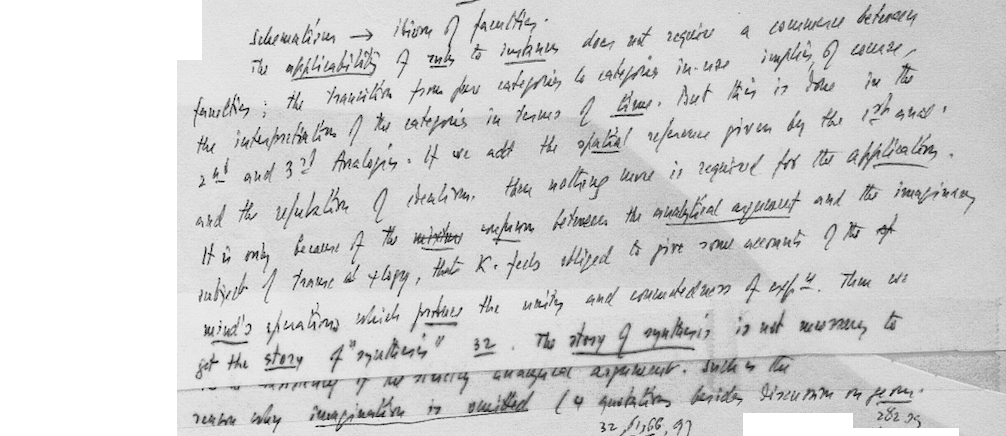 Schematism → ision of faculties.
The applicability of rules to instances does not require a commerce between
faculties; the transition from pure categories to categories in-use implies, of course,
the interpretation of the categories in terms of time. But this is done in the
2nd and 3rd Analogies. If we add the spatial reference given by the 1st anal.
and the refutation of idealism, then nothing more is required for the application.
It is only because of the mixture confusion between the analytical argument and the imaginary
subject of transc al ψlogy, that K. feels obliged to give some accounts of the of
mind's operations which produce the unity and connectedness of exp. Then we
get the story of "synthesis" 32. The story of synthesis is not necessary to
of the strictly analytical argument. Such is the
reason why imagination is omitted (4 quotations besides discussion on geom.
32, 66, 97 282